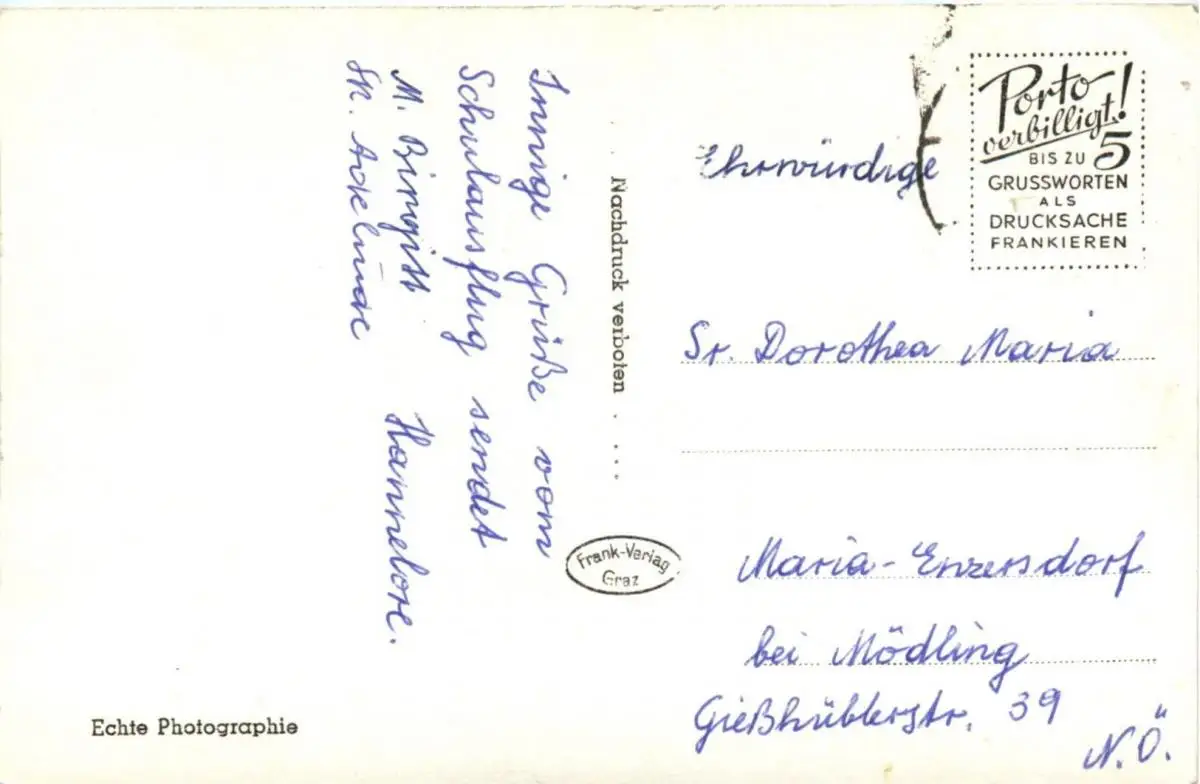 Innige Grüße vom
Schulausflug sendet
Hannelore.
M. Birgitt
Sr. Adelinde
Nachdruck verboten
Frank-Verlag
Graz
Echte Photographie
Porto
verbilligt!
BIS ZU 5
GRUSSWORTEN
ALS
DRUCKSACHE
FRANKIEREN
Ehrwürdige
Sr. Dorothea Maria
Maria-Enzersdorf
bei Mödling
Gießhüblerstr. 39
N.Ö.